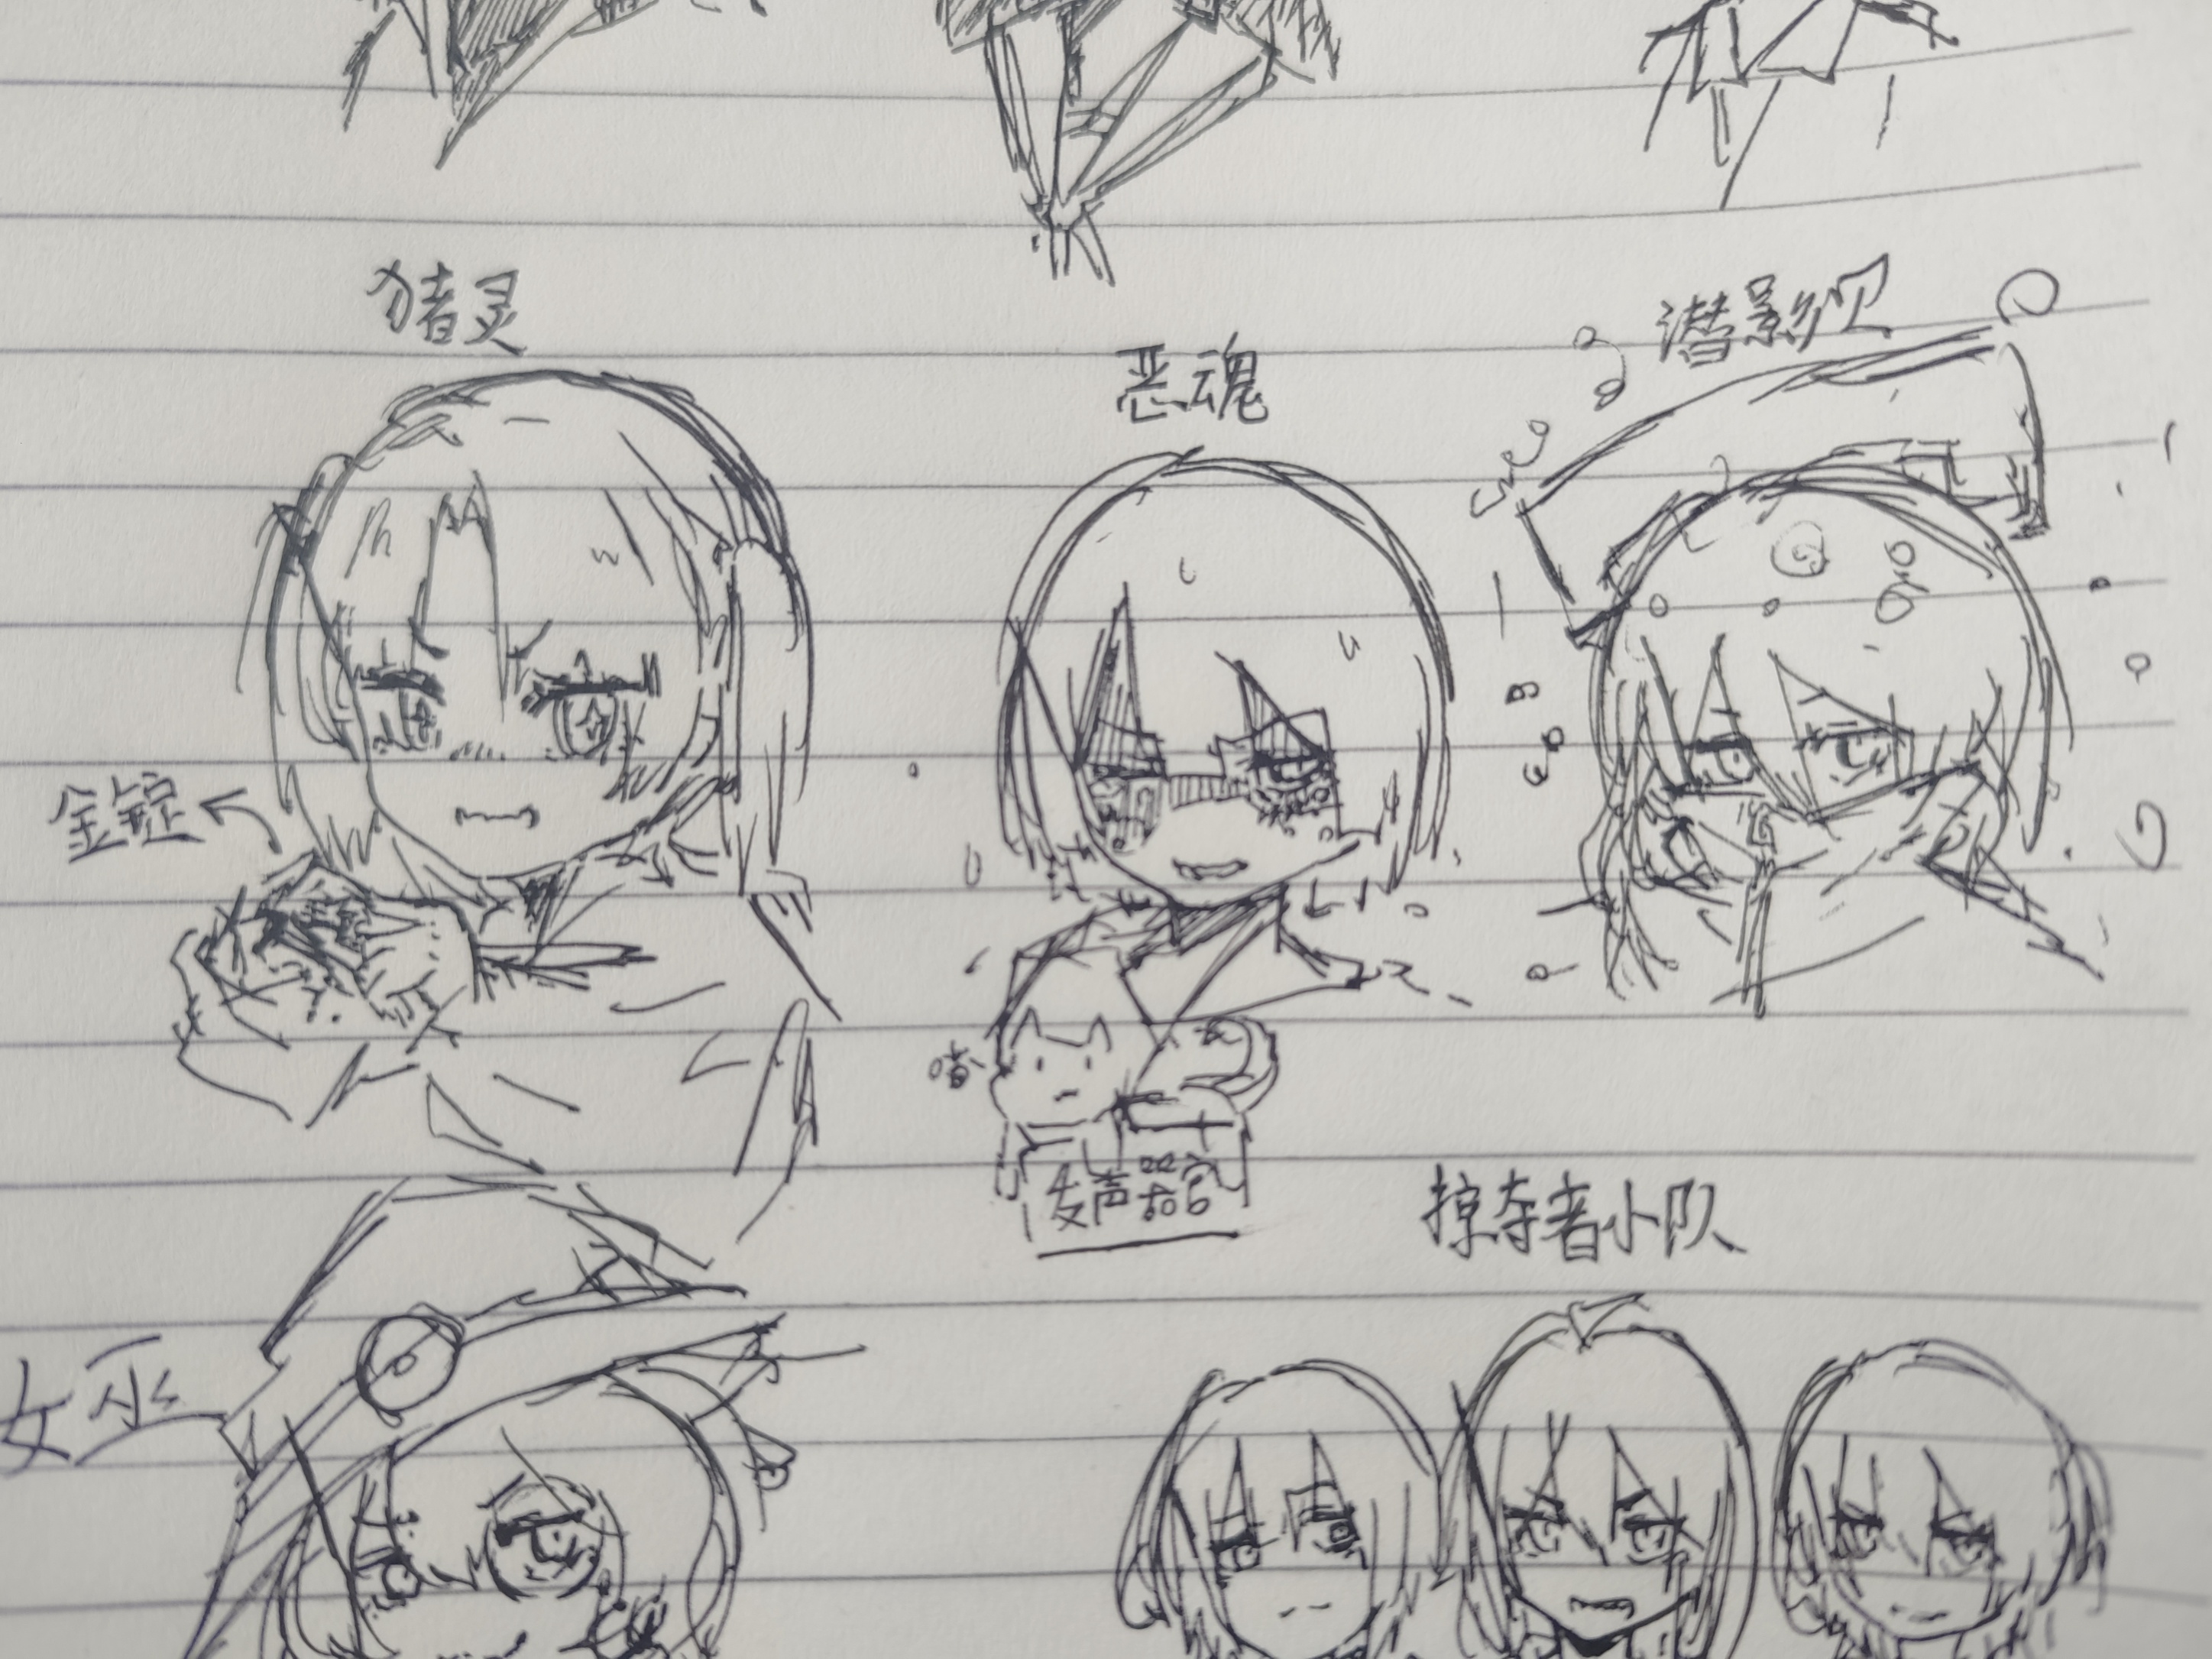 猪灵
恶魂
潜影贝
金锭
喳
发声器官
掠夺者小队
女巫